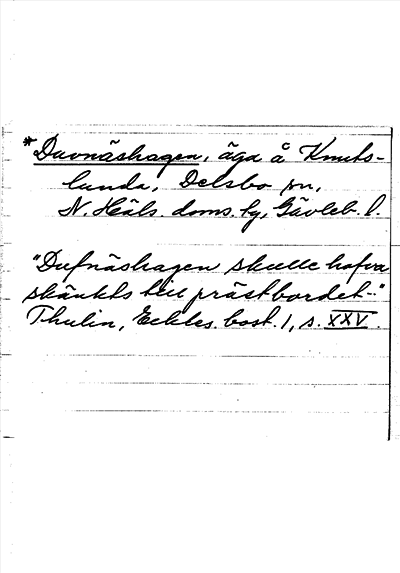 *Duvnäshagen, äga å Knuts-
lunda, Delsbo sn,
N. Häls. doms. fg, Gävleb. l.
"Dufnäshagen skulle hafva
skänkts till prästbordet-"
Thulin, Eckles. bost. 1, s. XXV.